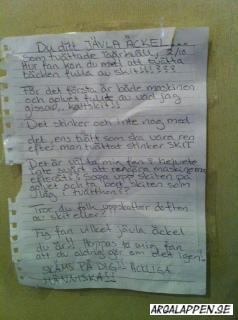 Du ditt JÄVLA ÄCKEL...
som tvättade ikväll, 2/10
Hur fan kan du med att tvätta
täcken fulla av skit!!!???
För det första är både maskinen
och golvet fullt av vad jag
gissar, kattskit!!
Det stinker och inte nog med
det, ens tvätt som ska vara ren
efter man tvättat stinker SKIT
Det är väl då min fan i helvete
inte svårt att rengöra maskinerna
efteråt? Sopa upp skiten på
golvet och ta bort skiten som
i tvätten??
Tror du folk uppskattar doften
av skit eller?
Fy fan vilket jävla äckel
du är!! Hoppas ta mig fan
att du aldrig gör om det igen!
SKÄMS PÅ DIG!! ÄCKLIGA
MÄNNISKA!!
ARGALAPPEN.SE